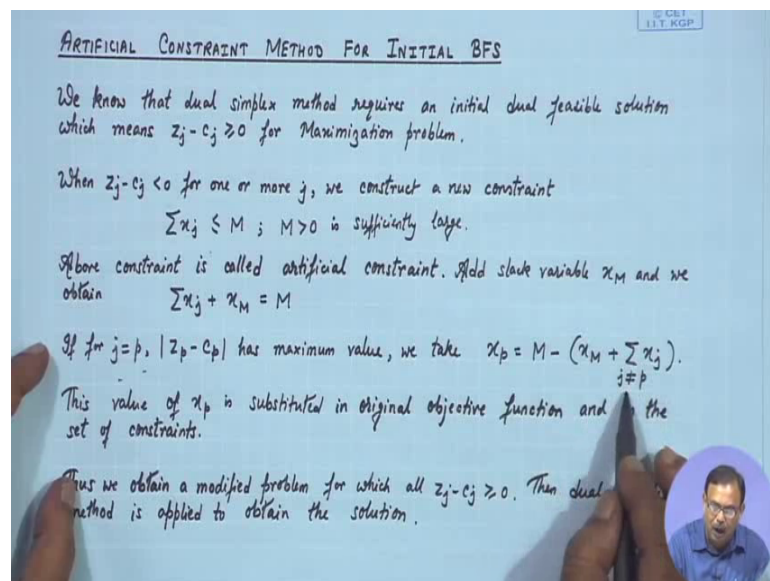 © CET
I.I.T. KGP
ARTIFICIAL CONSTRAINT METHOD FOR INITIAL BFS
We know that dual simplex method requires an initial dual feasible solution
which means Zj - Cj ≥ 0 for Maximization problem.
When Zj - Cj < 0 for one or more j, we construct a new constraint
∑xj ≤ M ; M>0 is sufficiently large.
Above constraint is called artificial constraint. Add slack variable xM and we
obtain ∑xj + xM = M
If for j=p, |Zp - Cp| has maximum value, we take xp = M - (xM + ∑ xj).
j≠p
This value of xp is substituted in original objective function and the
set of constraints.
Thus we obtain a modified problem for which all Zj - Cj ≥ 0. Then dual
method is applied to obtain the solution.